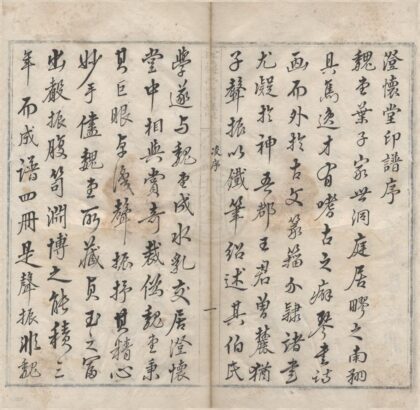 澄懷堂印譜序
魏堂葉子家世洞庭居疁之南翔
具雋逸才有嗜古之癖琴書詩
画而外於古文篆籀分隸諸書
尤凝於神吾郡王君曾麓猶
子聲振以鐵筆紹述其伯氏
序
一
學遂與魏堂成水乳交居澄懷
堂中相與賞奇裁僞魏堂秉
其巨眼卓識聲振抒其精心
妙手儘魏堂所藏貞玉之富
出聲振腹笥淵博之能積三
年而成譜四冊是聲振非魏